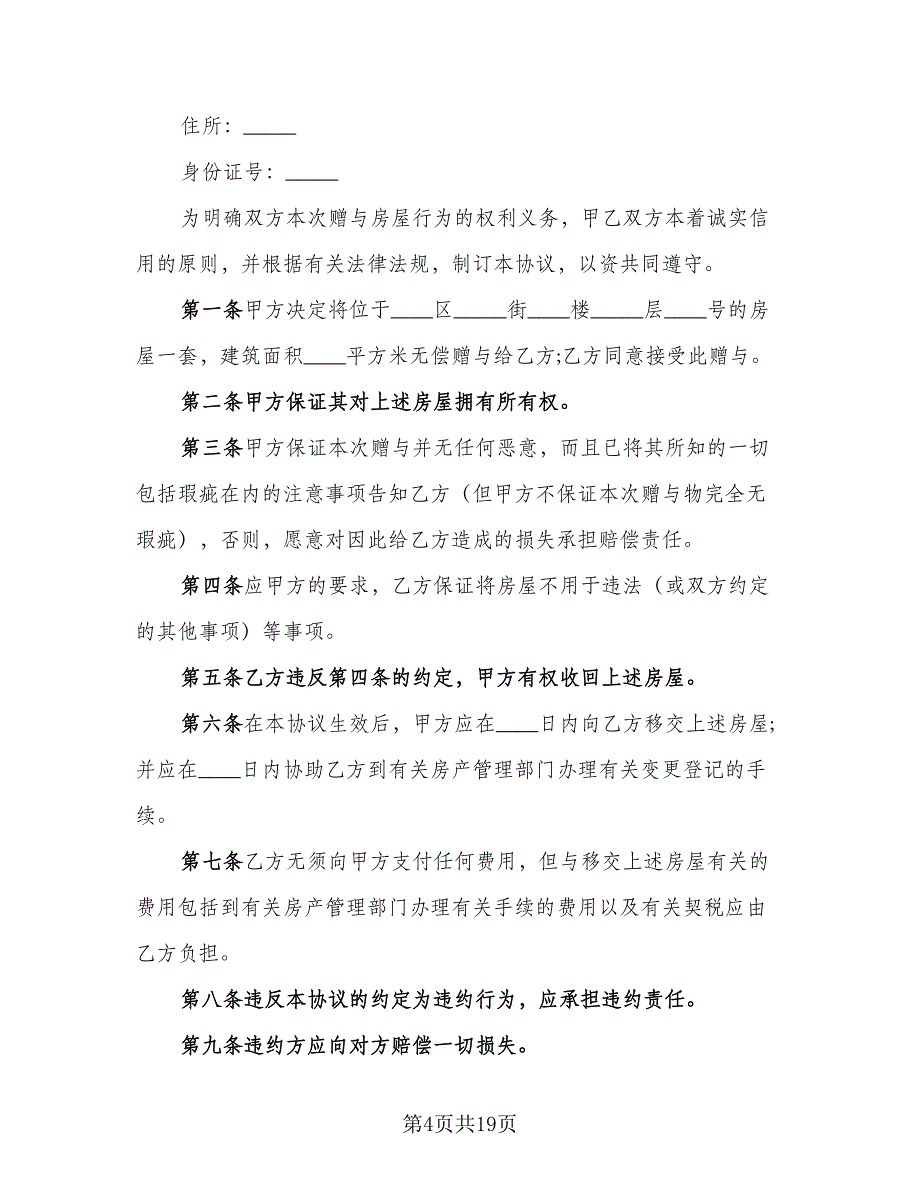 住所：_____
身份证号：_____
为明确双方本次赠与房屋行为的权利义务，甲乙双方本着诚实信
用的原则，并根据有关法律法规，制订本协议，以资共同遵守。
第一条甲方决定将位于____区_____街____楼_____层____号的房
屋一套，建筑面积____平方米无偿赠与给乙方;乙方同意接受此赠与。
第二条甲方保证其对上述房屋拥有所有权。
第三条甲方保证本次赠与并无任何恶意，而且已将其所知的一切
包括瑕疵在内的注意事项告知乙方（但甲方不保证本次赠与物完全无
瑕疵），否则，愿意对因此给乙方造成的损失承担赔偿责任。
第四条应甲方的要求，乙方保证将房屋不用于违法（或双方约定
的其他事项）等事项。
第五条乙方违反第四条的约定，甲方有权收回上述房屋。
第六条在本协议生效后，甲方应在____日内向乙方移交上述房屋;
并应在____日内协助乙方到有关房产管理部门办理有关变更登记的手
续。
第七条乙方无须向甲方支付任何费用，但与移交上述房屋有关的
费用包括到有关房产管理部门办理有关手续的费用以及有关契税应由
乙方负担。
第八条违反本协议的约定为违约行为，应承担违约责任。
第九条违约方应向对方赔偿一切损失。
第4页共19页